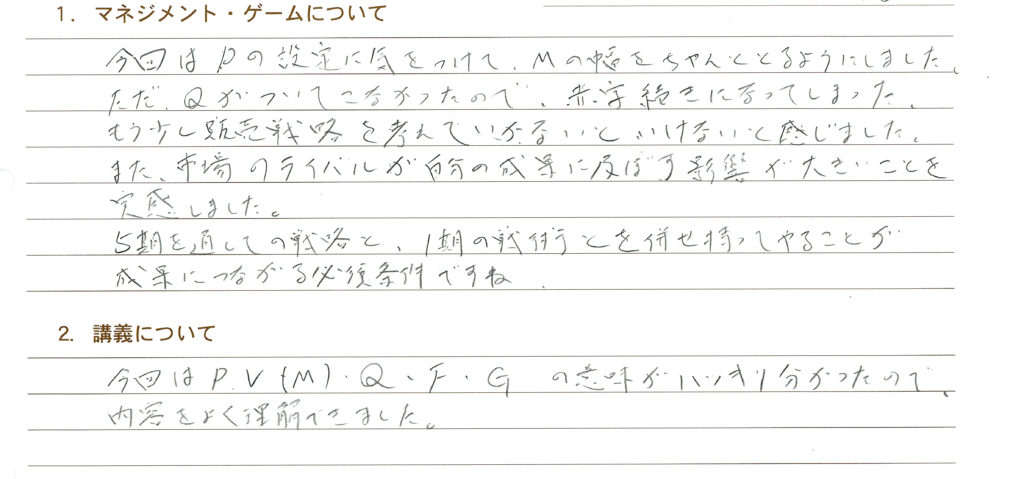 1. マネジメント・ゲームについて
今回はPの設定に気をつけて、Mの幅をちゃんととるようにしました。
ただ、Qがついてこなかったので、赤字続きになってしまった。
もう少し販売戦略を考えていかないといけないと感じました。
また、市場のライバルが自分の成果に及ぼす影響が大きいことを
実感しました。
5期を通しての戦略と、1期の戦術とを併せ持ってやることが
成果につながる必須条件ですね.
2. 講義について
今回はP.V(M)・Q・F・Gの意味がハッキリ分かったので、
内容をよく理解できました。